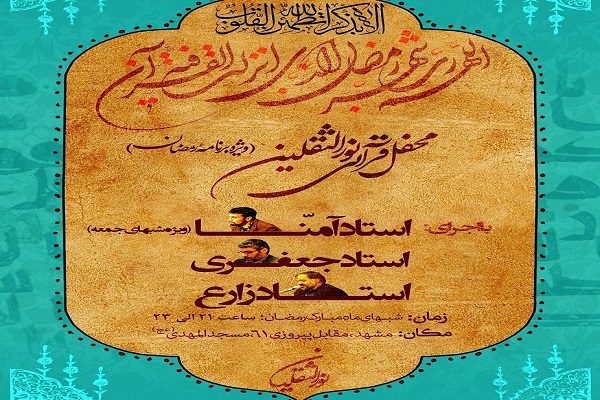 الا بذکر الله تطمئن القلوب
الهی رب شهر رمضان الذی انزلت فیه القرآن
محفل قرآنی نورالثقلین (ویژه برنامه رمضان)
با اجرای: استاد آمنّا (ویژه شبهای جمعه)
استاد جعفری
استاد زارع
زمان: شبهای ماه مبارک رمضان؛ ساعت ۲۱ الی ۲۳
مکان: مشهد، مقابل پیروزی ۶۱ مسجد المهدی (عج)
نورالثقلین